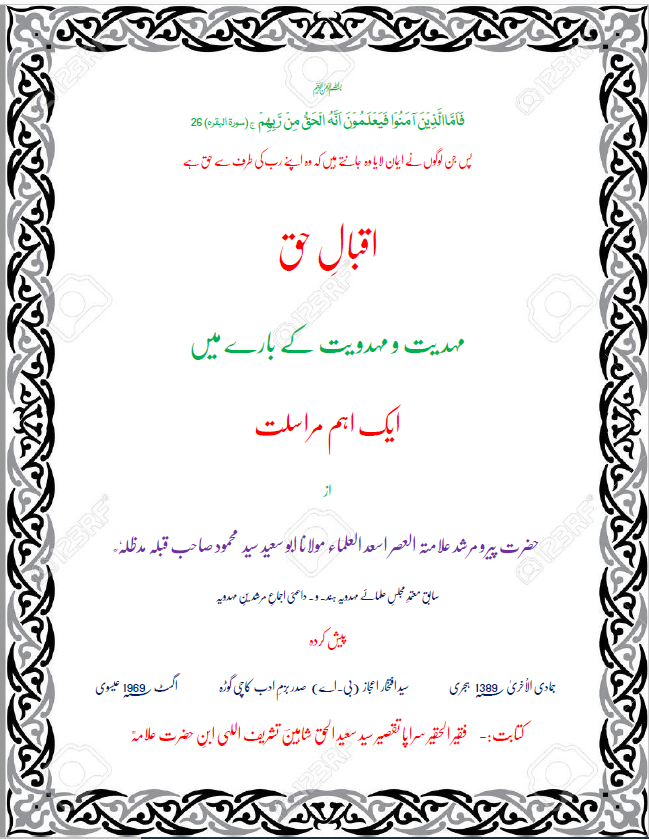 بسم اللہ الرحمن الرحیم
فَاَمَّا الَّذِیْنَ آمَنُوْا فَیَعْلَمُوْنَ اَنَّہُ الْحَقُّ مِنْ رَّبِّھِمْ ج (سورۃ البقرہ) 26
پس جن لوگوں نے ایمان لایا وہ جانتے ہیں کہ وہ اپنے رب کی طرف سے حق ہے
اقبالِ حق
مہدیت و مہدویت کے بارے میں
ایک اہم مراسلت
از
حضرت پیر و مرشد علامتہ العصر اسعد العلماء مولانا ابو سعید سید محمود صاحب قبلہ مدظلہٗ
سابق معتمد مجلسِ علمائے مہدویہ ہند۔ و۔ داعئی اجماعِ مرشدینِ مہدویہ
پیش کردہ
جمادی الاُخریٰ 1389 ہجری سید افتخار اعجاز (بی۔اے) صدر بزمِ ادب کاچی گوڑہ اگست 1969 عیسوی
کتابت:- فقیر الحقیر سراپا تقصیر سید سعید الحق شاہینؔ تشریف اللہی ابن حضرت علامہؒ
123RF